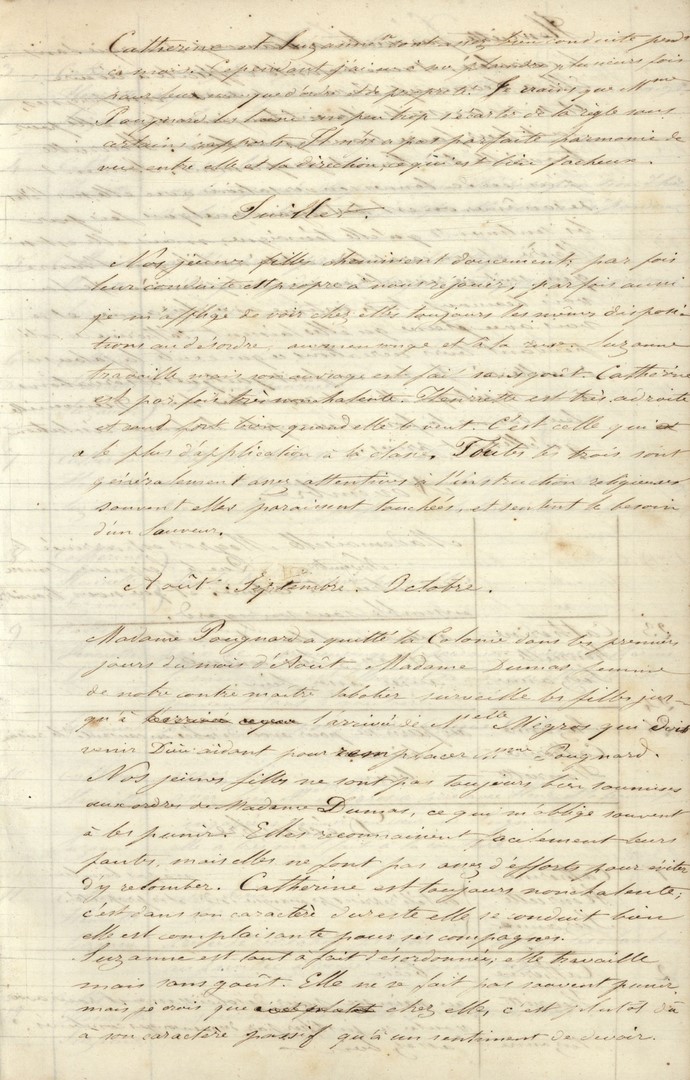 Catherine et Suzanne se sont assez bien conduite pend
ce mois. Cependant j'ai eu à me plaindre plusieurs fois
pour leur manque d'ordre et de propreté. Je crains que Mme
Pougnard les laisse un peu trop s'écarter de la règle sous
certains rapports. Il n'y a pas parfaite harmonie de
vues entre elle et la direction, ce qui est bien facheux.
Juillet.
Nos jeunes filles cheminent doucement; par fois
leur conduite est propre à nous réjouir, parfois aussi
je m'afflige de voir chez elles toujours les mêmes disposi-
tions au désordre, au mensonge et à la ruse. Suzanne
travaille mais son ouvrage est fait sans goût. Catherine
est par fois très nonchalente. Henriette est très adroite
et rend fort bien quand elle le veut. C'est celle qui
a le plus d'application à la classe. Toutes les trois sont
généralement assez attentives à l'instruction religieuse
souvent elles paraissent touchées, et sentent le besoin
d'un Sauveur.
Août. Septembre. Octobre.
Madame Pougnard a quitté la Colonie dans les premiers
jours du mois d'Août. Madame Dumas femme
de notre contre maître bêcher surveille les filles jus-
qu'à l'arrivée de Melle Migros qui doit
venir Dieu aidant pour remplacer Mme Pougnard.
Nos jeunes filles ne sont pas toujours bien soumises
aux ordres de Madame Dumas, ce qui m'oblige souvent
à les punir. Elles reconnaissent facilement leurs
fautes, mais elles ne font pas assez d'efforts pour éviter
d'y retomber. Catherine est toujours nonchalente;
c'est dans son caractère du reste elle se conduit bien
elle est complaisante pour ses compagnes.
Suzanne est tout à fait désordonnée; elle travaille
mais sans goût. Elle ne se fait pas souvent punir,
mais je crois que chez elle, c'est plutôt dû
à son caractère passif qu'à un sentiment de devoir.